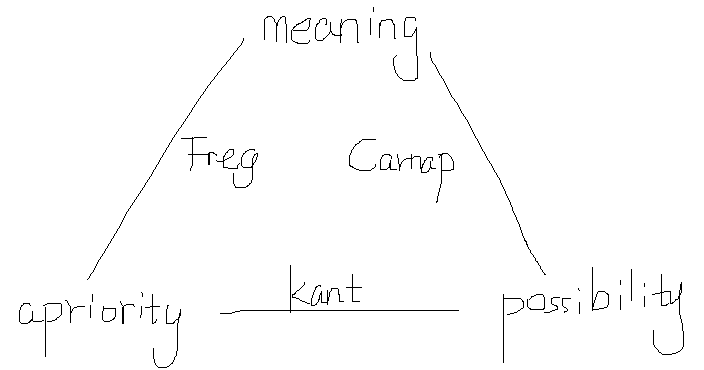 meaning
Freg Carnap
kant
apriority possibility